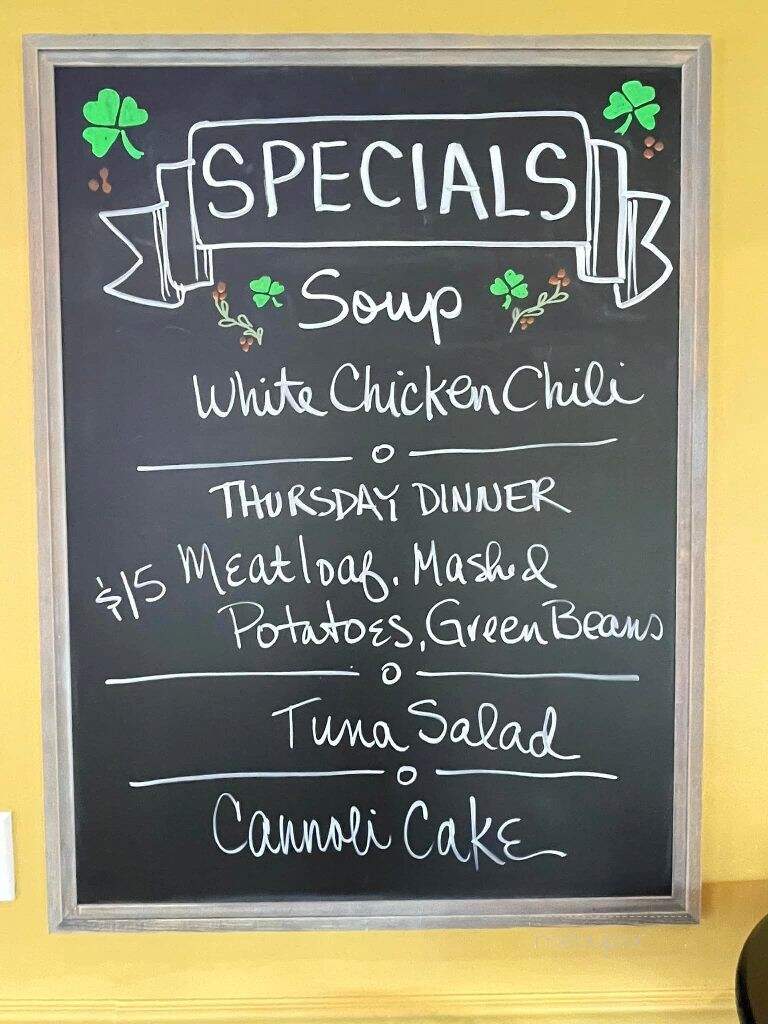 SPECIALS
Soup
White Chicken Chili
THURSDAY DINNER
$15 Meatloaf, Mashed
Potatoes, Green Beans
Tuna Salad
Cannoli Cake